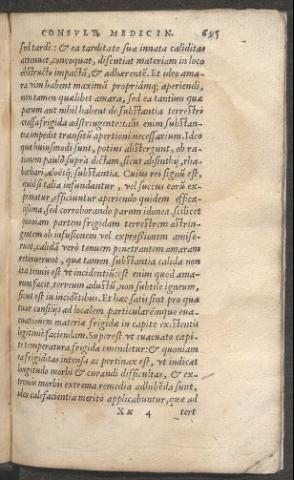 CONSVLT. MEDICIN. 695
sed tardè: & ea tarditate suæ innata caliditas
attenuet, concoquat, discutiat materiam in loco
obstructo impactā, & adhærentē. Et ideo ama-
ra vim habent maximā propriámq; aperiendi,
non tamen quælibet amara, sed ea tantùm quæ
parum aut nihil habent de substantia terrestri
crassa frigida adstringente: talis enim substan-
tia impedit transitū apertioni necessarium. Ideo
quæ huiusmodi sunt, potius abstergunt, ob ra-
tionem paulò suprà dictam, sicut absinthij, rha-
barbari, substantia. Cuius rei signū est,
quòd si talia infundantur, vel succus eorū ex-
primatur, efficiuntur aperiendo quidem effica-
cissima, sed corroborando parum idonea, scilicet
quoniam partem frigidam terrestrem astrin-
gentem ob infusionem vel expressionem amise-
runt, calidā verò tenuem penetrantem amaram
retinuerunt, quæ tamen substantia calida non
ita tenuis est vt incidentiū: est enim quòd ama-
rum facit, terreum adustū, non subtile igneum,
sicut est in incidētibus. Et hæc satis sint pro quæ
tuor consilijs ad localem particularémque eua-
cuationem materiæ frigidæ in capite existentis
legitimè faciendam. Superest vt euacuato capi-
te temperatura frigida emendetur: & quoniam
ea frigiditas intensa ac pertinax est, vt indicat
longitudo morbi & curandi difficultas, & ex-
tremis morbis extrema remedia adhibēda sunt,
ideo calefacientia meritò applicabuntur, quæ ad
Xx 4 tert